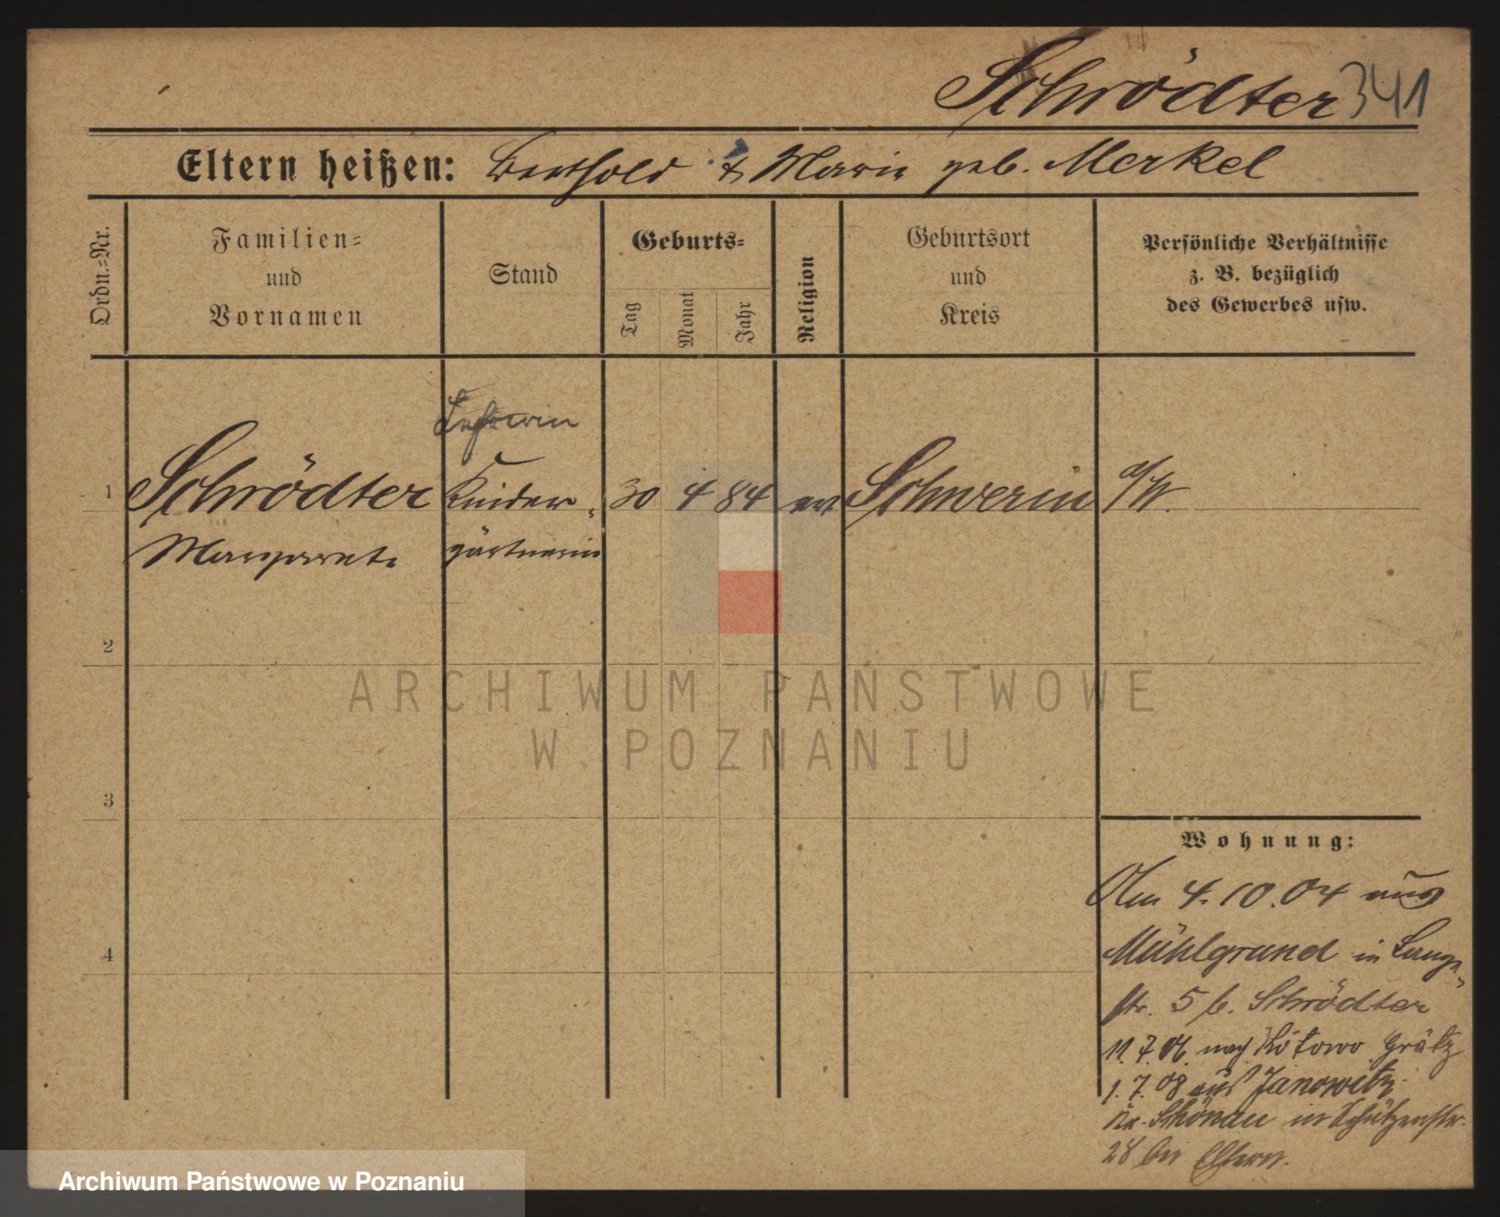 Schrödter 341
Eltern heißen: Berthold & Marie geb. Merkel
Ordn.=Nr.
Familien=
und
Vornamen
Stand
Geburts=
Tag
Monat
Jahr
Religion
Geburtsort
und
Kreis
Persönliche Verhältnisse
z. B. bezüglich
des Gewerbes usw.
1 Schrödter Kinder- 30 4 84 ev Schwerin a/W.
Margarete gärtnerin
2
ARCHIWUM PAŃSTWOWE
W POZNANIU
3
Wohnung:
Am 4.10.04 aus
4
Mühlgrund in Lange-
str. 5 b. Schrödter
11.7.06 nach Kotowo Grätz
1.7.08 aus Janowitz
Kr. Schönau in Schützenstr.
28 bei Eltern.
Archiwum Państwowe w Poznaniu